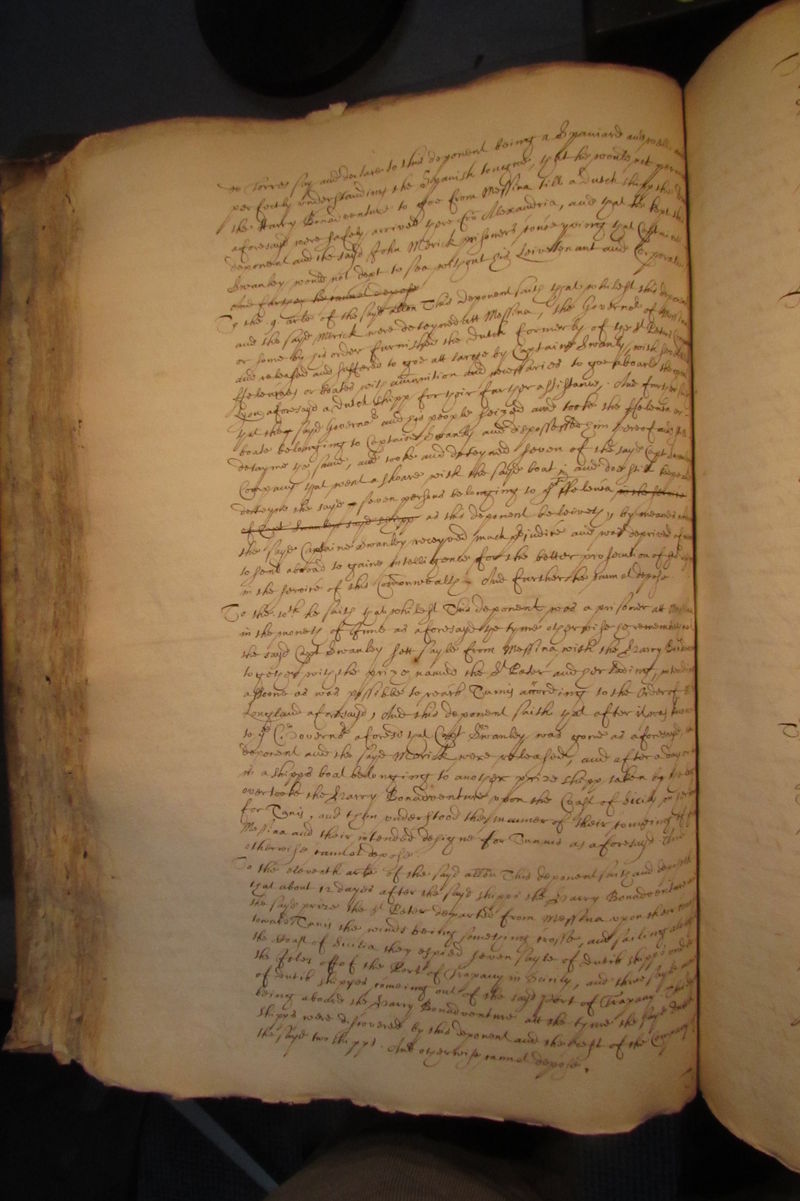 de Torres say and declare to this deponent being a Spaniard and well and
perfectly understanding the Spanish tongue, that he would not permit
the Harry Bonadventure to goe from Messina till a dutch shipp the
aforesaid were safely arrived there from Alexandria, and that he kept this
deponent and the sayd John Merick prisoners knowing that Captaine
Swanley would not dept to sea without his Leivetenant and Corporall
And further he cannot depose
To the .9. arle of the sayd allon This deponent saith that whilest this deponent
and the sayd Merick were deteyned att Messina, the Governor of Messina
or some by his order furnished the dutch formerly of the St Peter
and released and suffered to goe att large by Captaine Swanly, with
ffeleucas or boates with ammunition and necessaries to goe aboard the
aforesaid a dutch shipp for their further assistance. And further saith
that the sayd Governor and his people seized and tooke the ffeleuca or
boate belonging to Captaine Swanley and dispossessed him thereof and still
detayne the same, and tooke and deteyned seven of the sayd Capt Swanleys
Company that went a shoare with the sayd boat, and doe still keepe and
deteyne the sayd seven persons belonging to ye ffeleuca in the service
of Capt Swanleys sayd shipp as this deponent beleiveth, by meanes
the sayd Captaine Swanley receyved much prejudice and was deprived
to send abroad to gaine Intelligence for the better prosecution of
in the service of this Commonwealth, And further he cannot depose
To the 10th he saith that whilest This deponent was a prisoner att Messina
in the moneth of June as aforesayd the tyme otherwise he remembreth not
the sayd Capt Swanley sett sayle from Messina with the Harry Bonadventure
together with the prize named the St Peter and her lading, intending
assoone as was possible to reach Tunnis according to the Order of
Longland aforesayd, And this deponent saith that after it was knowne
to ye Governor aforesd that Capt Swanley was gone as aforesayd, this
deponent and the sayd Merick were released, and after a day or
in a shipps boat belonging to another prize shipp taken by
overtooke the Harry Bonadventure upon the Coast of Sicily
for Tunis, and then understood the manner of their comeing
Messina and their intended designe for Tunnis as aforesayd And
otherwise cannot depose
To the eleventh arle of the sayd allon This deponent saith and deposeth
that about 12 dayes after the sayd shipps the Harry Bonadventure and
the sayd prize the St Peter departed from Messina upon their
towards Tunis the winds being something crosse, and sailing along
the Coast of Sicilia they espied seven sayle of dutch shipps under
the Isles off of the Port of Trapany in Sicily, and three sayle
of dutch shippes comeing out of the sayd Port of Trapany
being aboard the Harry Bonadventure att the tyme the sayd dutch
shipps were discovered by this deponent and the rest of the Company
the sayd two shipps. And otherwise cannot depose.